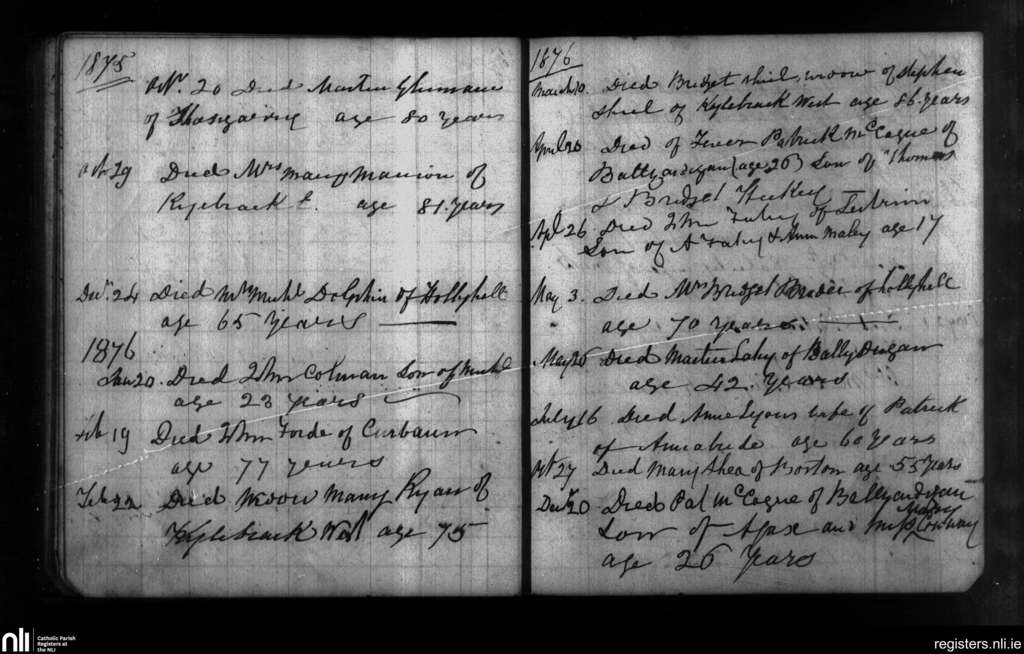 1875
Octr. 20 Died Martin
of age 80 years
Oct 29 Died Mrs Mary Mannion of
Kylebrack E. age 81. years
Decr. 24 Died Mr Michl Dolphin of Hollyhill
age 65 Years
1876
Jan 20. Died Wm Colman Son of Michl
age 23 years
Feb 19 Died Wm Forde of
age 77 years
Feb 22 Died Widow Mary Ryan of
Kylebrack West age 75
1876
March 10. Died Bridget Shiel, widow of Stephen
Shiel of Kylebrack West age 86. years
April 20 Died of Fever Patrick McCague of
Ballyardigan (age 26) Son of Thomas
& Bridget
Apl 26 Died Wm of
Son of & Ann age 17
May 3. Died Mrs Bridget of Hollyhill
age 70 years.
May 26 Died Martin Lahy of Bally Dugan
age 42. Years
July 16 Died Anne Lyons wife of Patrick
of age 60 Years
Oct 27 Died Mary Shea of age 55 Years
Decr 20 Died Pat McCague of Ballyardigan
Son of and Mary Conway
age 26 Years
nli
Catholic Parish
Registers at
the NLI
registers.nli.ie